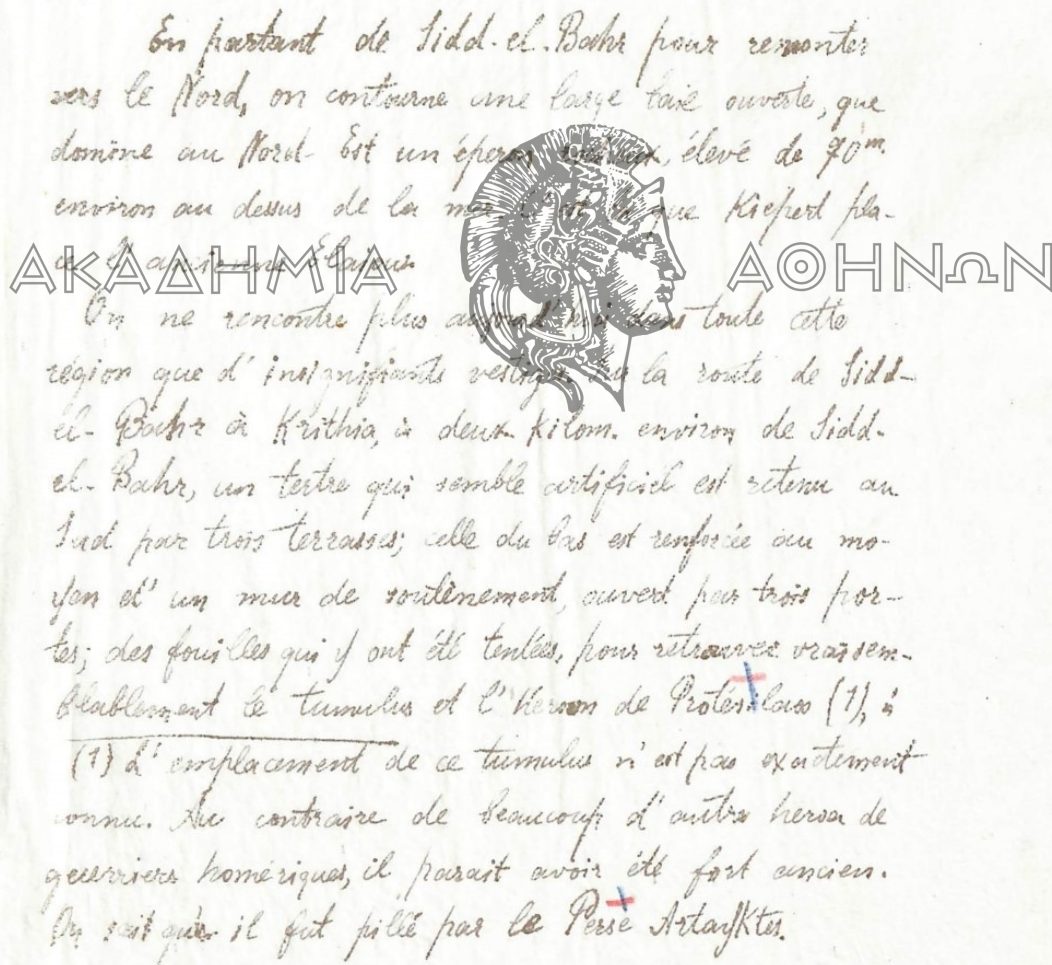 En partant de Sidd-el-Bahr pour remonter
vers le Nord, on contourne une large baie ouverte, que
domine au Nord-Est un éperon rocheux, élevé de 70m.
environ au dessus de la mer. C'est là que Kiepert pla-
ce l'ancienne Élaious
ΑΚΑΔΗΜΙΑ ΑΘΗΝΩΝ
On ne rencontre plus aujourd'hui dans toute cette
région que d'insignifiants vestiges. Sur la route de Sidd-
el-Bahr à Krithia, à deux kilom. environ de Sidd-
el-Bahr, un tertre qui semble artificiel est retenu au
Sud par trois terrasses; celle du bas est renforcée au mo-
yen d'un mur de soutènement, ouvert par trois por-
tes; des fouilles qui y ont été tentées, pour retrouver vraisem-
blablement le tumulus et l'Heroon de Protésilaos (1), à
(1) L'emplacement de ce tumulus n'est pas exactement
connu. Au contraire de beaucoup d'autres heroa de
guerriers homériques, il parait avoir été fort ancien.
On sait qu' il fut pillé par le Perse Artayktes.